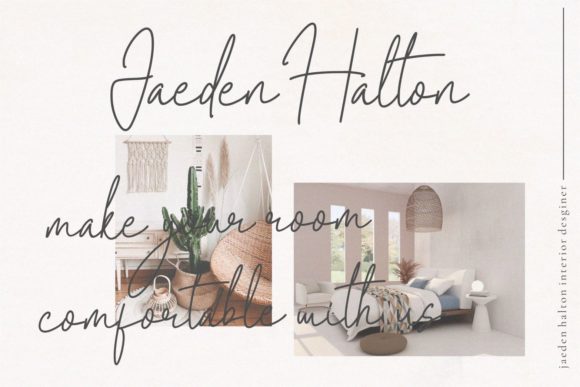 Jaeden Halton
make your room
comfortable with us
jaeden halton interior desginer